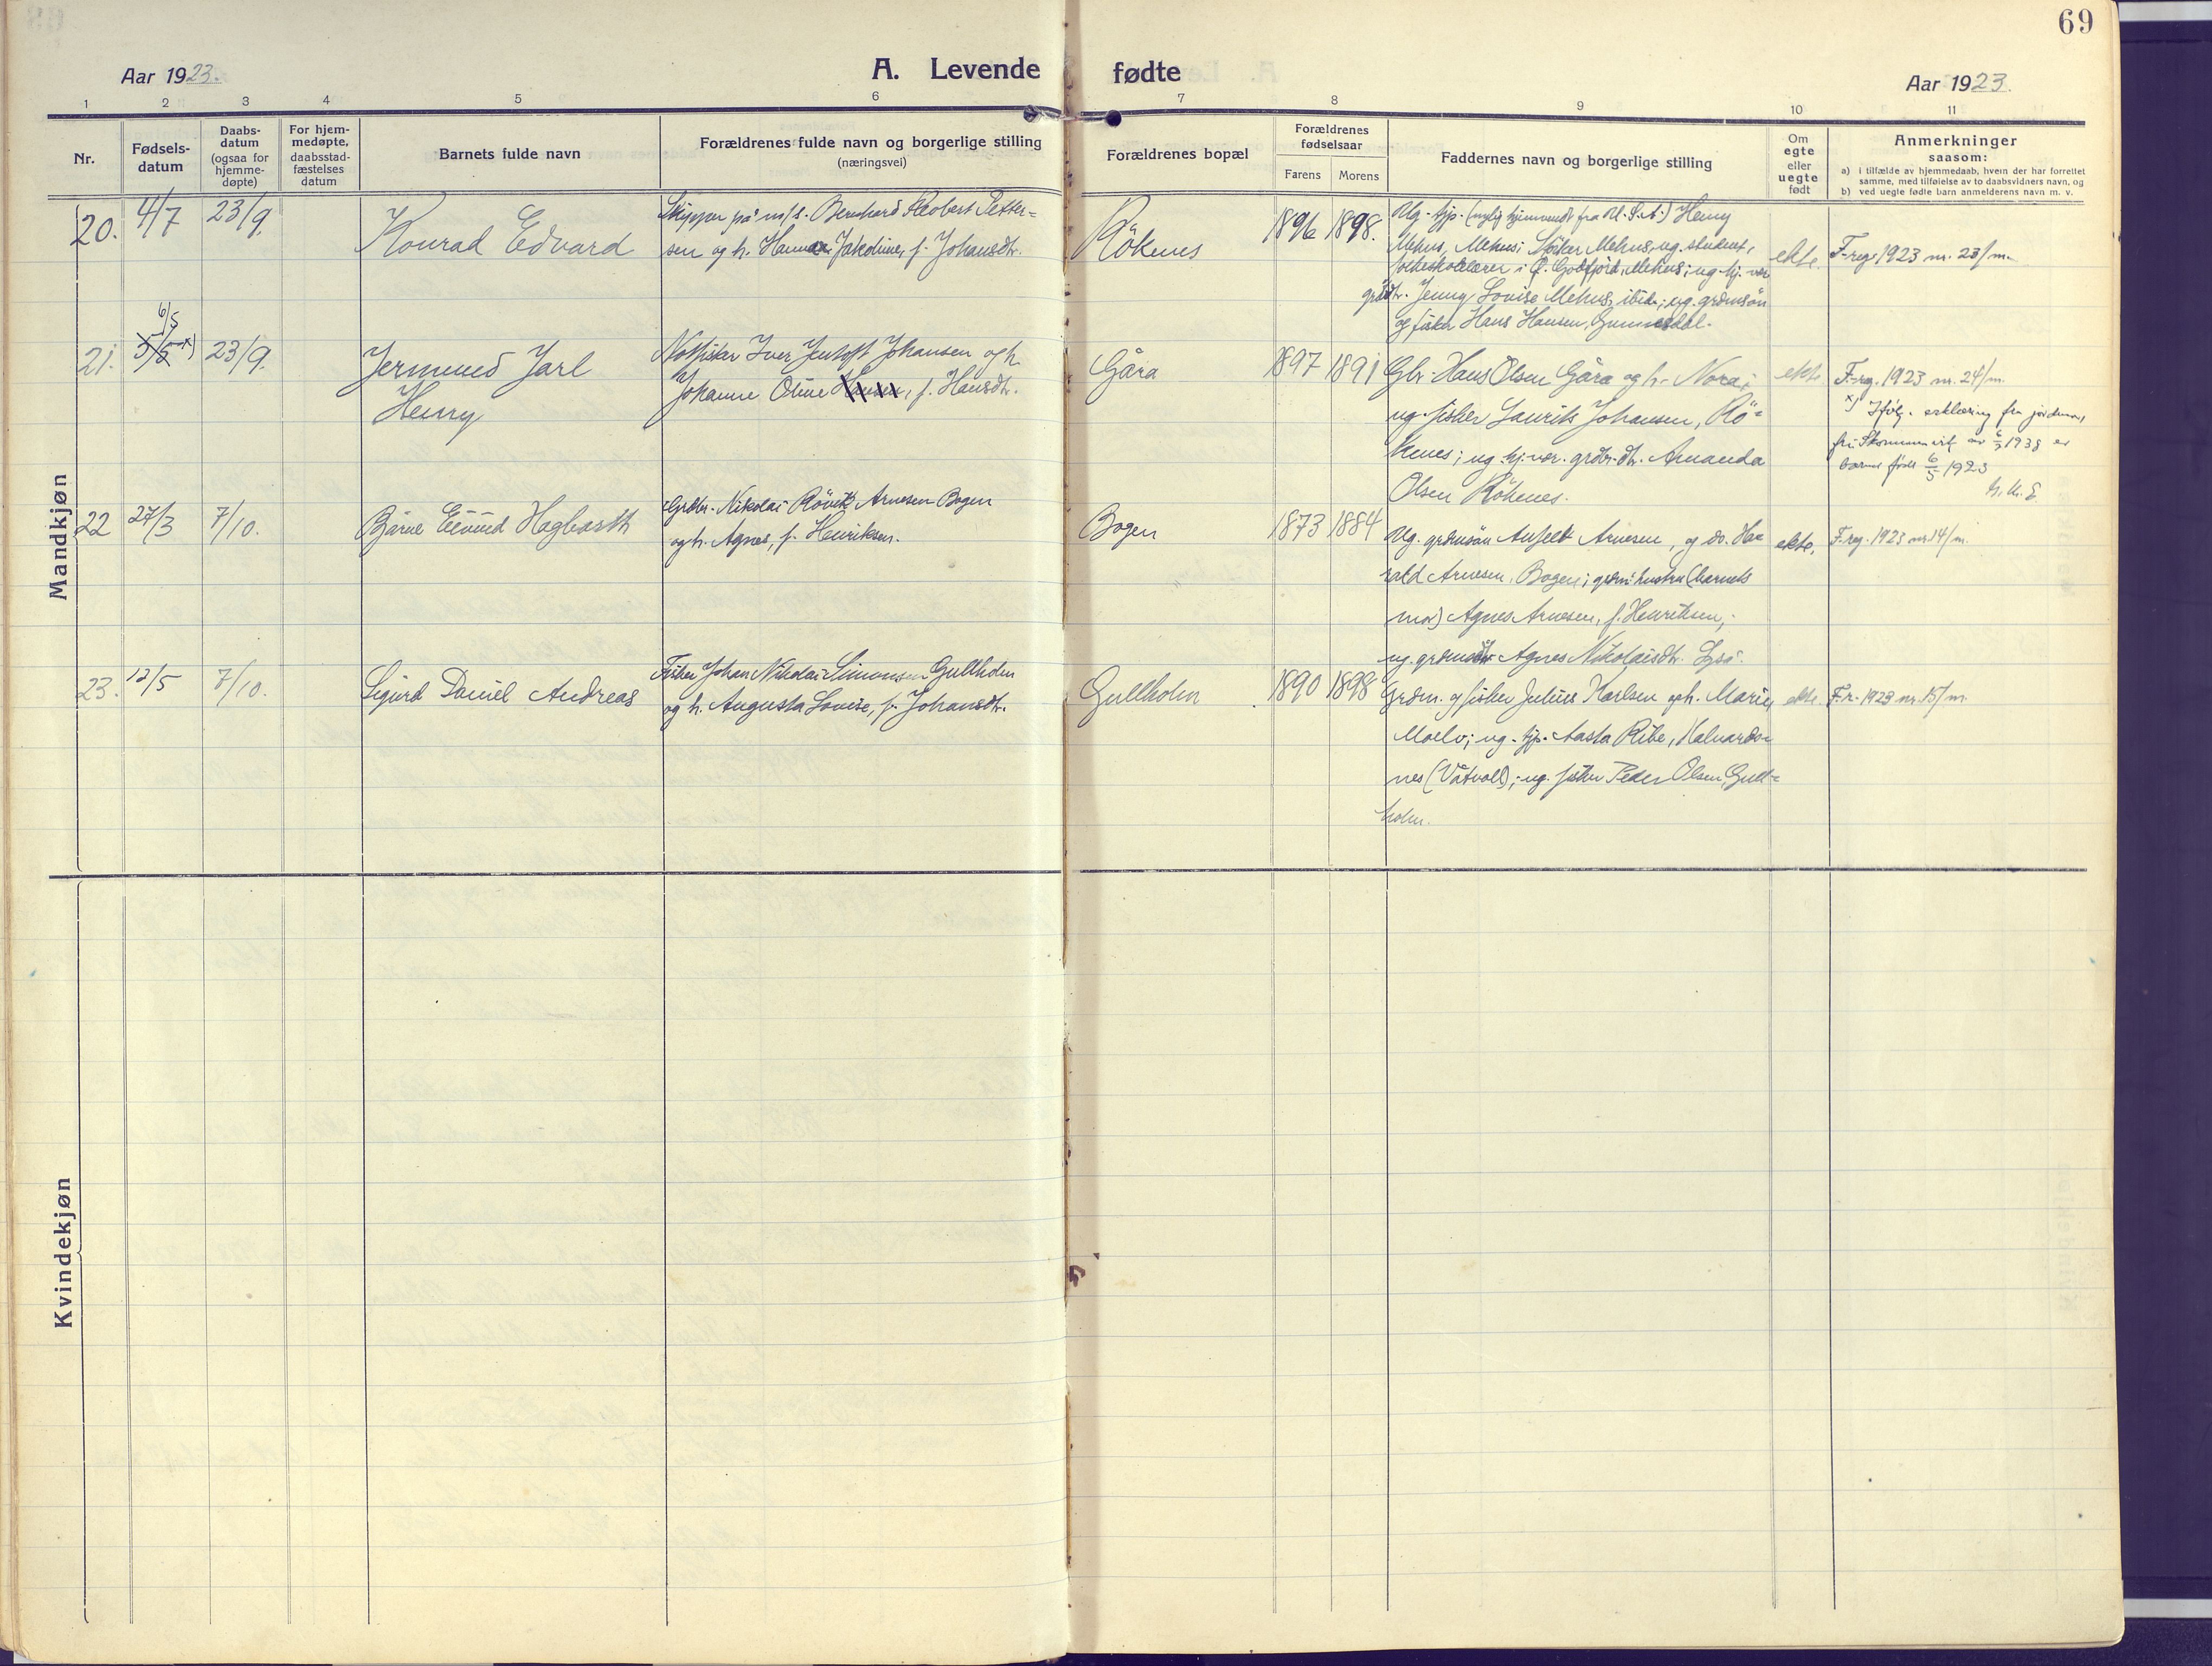 69
Aar 1923.
A. Levende fødte
Aar 1923.
1 2 3 4 5 6 7 8 9 10 11
Nr.
Fødsels-
datum
Daabs-
datum
(ogsaa for
hjemme-
døpte)
For hjem-
medøpte,
daabsstad-
fæstelses
datum
Barnets fulde navn
Forældrenes fulde navn og borgerlige stilling
(næringsvei)
Forældrenes bopæl
Forældrenes
fødselsaar
Farens Morens
Faddernes navn og borgerlige stilling
Om
egte
eller
uegte
født
Anmerkninger
saasom:
a) i tilfælde av hjemmedaab, hvem der har forrettet
samme, med tilføielse av to daabsvidners navn, og
b) ved uegte fødte barn anmelderens navn m. v.
Mandkjøn
20. 4/7 23/9.
Konrad Edvard
Skipper på m/s. Bernhard Robert Petter-
sen og h. Hanna Jakobine, f. Johansdtr.
Rökenes
1896 1898.
Ug. tjp. (nylig hjemvendt fra U.S.A.) Henry
Mehus, Mehus; Mehus, ug. student,
folkeskolelærer i Godfjord, Mehus; ug. hj. vær.
grdbdtr. Jenny Lovise Mehus, ibid.; ug. grdmsön
og fisker Hans Hansen, Gunnesdal.
ekte.
F.reg. 1923 nr. 23/m.
21. 6/5
5/5 x) 23/9.
Jermund Jarl
Henry
Notfisker Iver Jentoft Johansen og h.
Johanne Oline, f. Hansdtr.
Gåra
1897 1891
Gbr. Hans Olsen Gåra og h. Nora;
ug. fisker Laurits Johansen, Rö-
kenes; ug. hj. vær. grdbr. dtr. Amanda
Olsen Rökenes.
ekte.
F.reg. 1923 nr. 24/m.
x) Ifölg. erklæring fra jordmor,
fru av 1938 er
barnet født 6/5 1923
22 27/3 7/10.
Bjarne Eivind Hagbarth
Grdbr. Nikolai Rövik Arnesen Bogen
og h. Agnes, f. Henriksen.
Bogen
1873 1884
Ug. grdmsön Arnesen, og do. Ha-
rald Arnesen, Bogen; grdm. hustru (barnets
mor) Agnes Arnesen, f. Henriksen;
ug. grdmdtr. Agnes Nikolaisdtr.
ekte.
F.reg. 1923 nr. 14/m.
23. 12/5 7/10.
Sigurd Daniel Andreas
Fisker Johan Nikolai Simonsen Gullholm
og h. Augusta Lovise, f. Johansdtr.
Gullholm
1890 1898
Grdm. og fisker Julius Karlsen og h. Marie,
Moelv; ug. tjp. Aasta Ribe, Halvards-
nes (Våtvoll); ug. fisker Peder Olsen, Gull-
holm.
ekte.
F.r. 1923 nr. 15/m.
Kvindekjøn